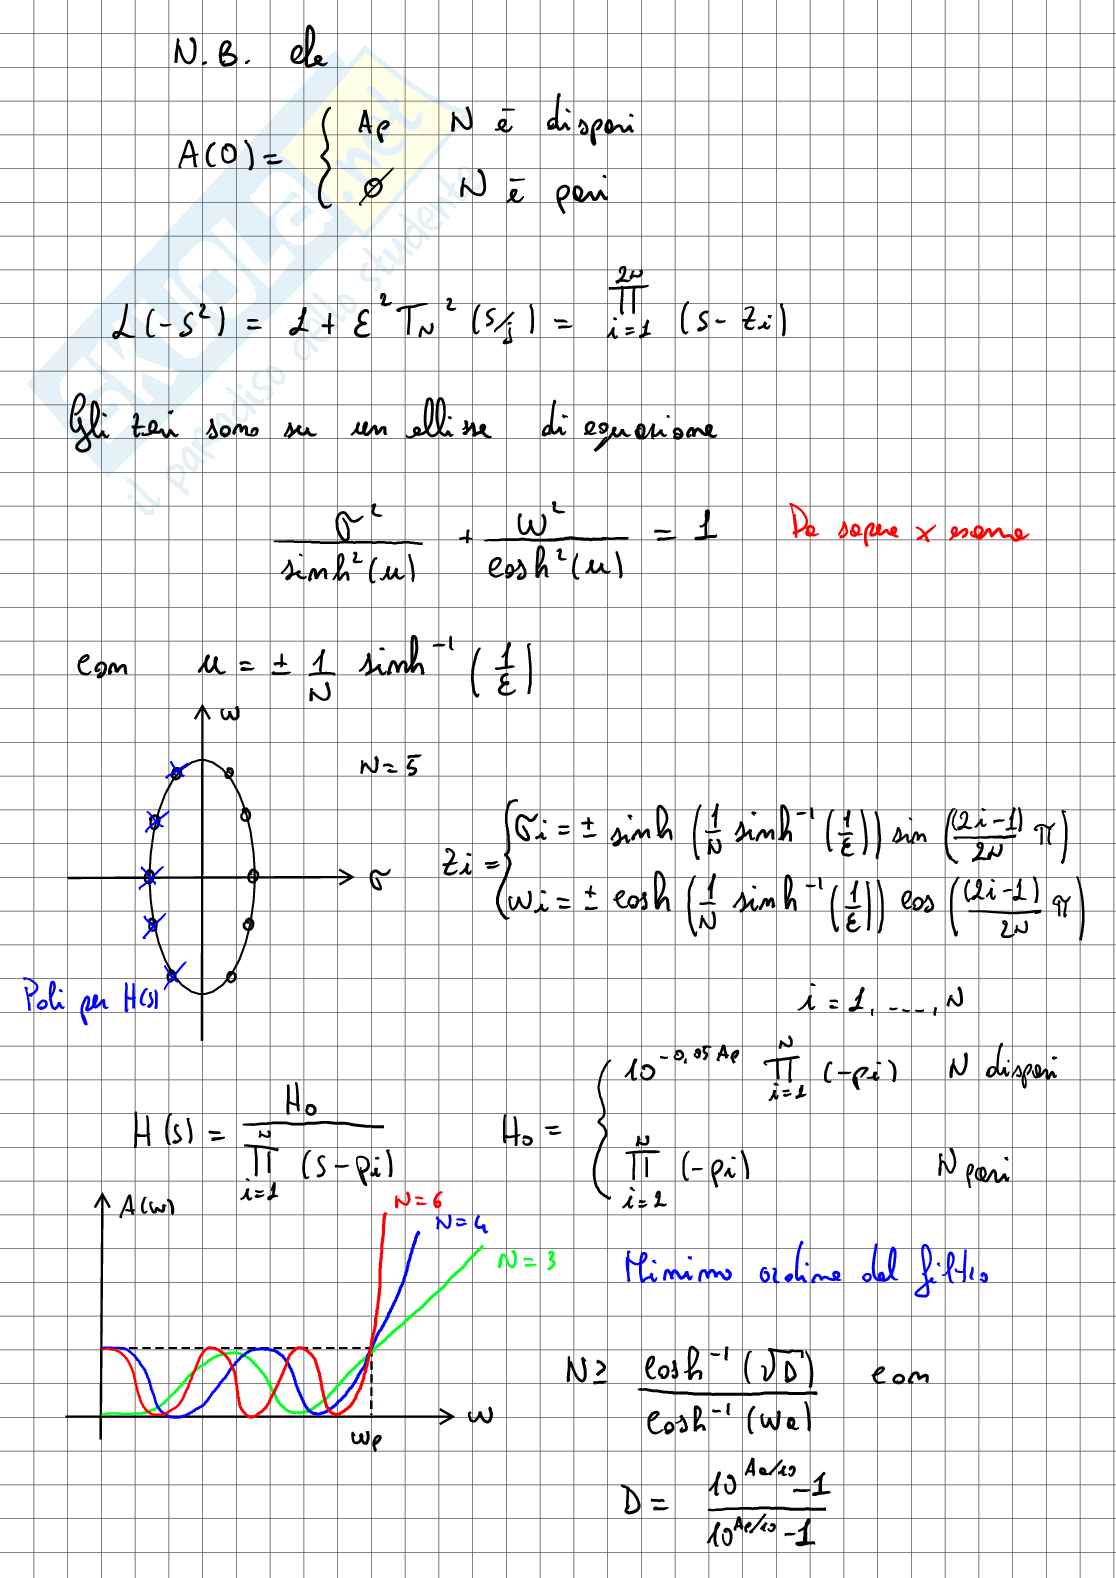 N.B. che
A(0) = { Ap N è dispari
∅ N è pari
L(-s²) = 1 + ε² T_N² (s/j) = ∏_{i=1}^{2N} (s - zi)
Gli zeri sono su un ellisse di equazione
σ²/sinh²(u) + ω²/cosh²(u) = 1 Da sapere x esame
con u = ± 1/N sinh⁻¹ (1/ε)
ω
N = 5
σ
zi = { σi = ± sinh (1/N sinh⁻¹ (1/ε)) sin ((2i-1)/2N π)
ωi = ± cosh (1/N sinh⁻¹ (1/ε)) cos ((2i-1)/2N π)
Poli per H(s)
i = 1, ..., N
H(s) = H₀ / ∏_{i=1}^{N} (s - pi)
H₀ = { 10^{-0,05 Ap} ∏_{i=1}^{N} (-pi) N dispari
∏_{i=1}^{N} (-pi) N pari
A(ω)
N = 6
N = 4
N = 3
ω
ωp
Minimo ordine del filtro
N ≥ cosh⁻¹ (√D) / cosh⁻¹ (ωa) con
D = (10^{Aa/10} - 1) / (10^{Ap/10} - 1)
SKUOLA.net
il paradiso dello studente